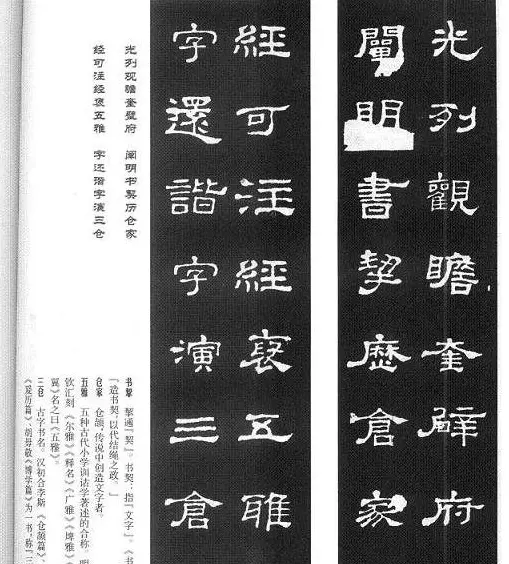 光列觀瞻奎壁府
闡明書挈歷倉家
經可注經裒五雅
字還諧字演三倉
光列观瞻奎壁府　阐明书契历仓家
经可注经裒五雅　字还谐字演三仓
书挈　挈通『契』。书契：指『文字』。《书
『造书契，以代结绳之政。』
仓家　仓颉，传说中创造文字者。
五雅　五种古代小学训诂学著述的合称。明
钦汇刻《尔雅》《释名》《广雅》《埤雅》《
翼》名之曰《五雅》。
三仓　古字书名。汉初合李斯《仓颉篇》、
《爰历篇》、胡毋敬《博学篇》为一书，称『三